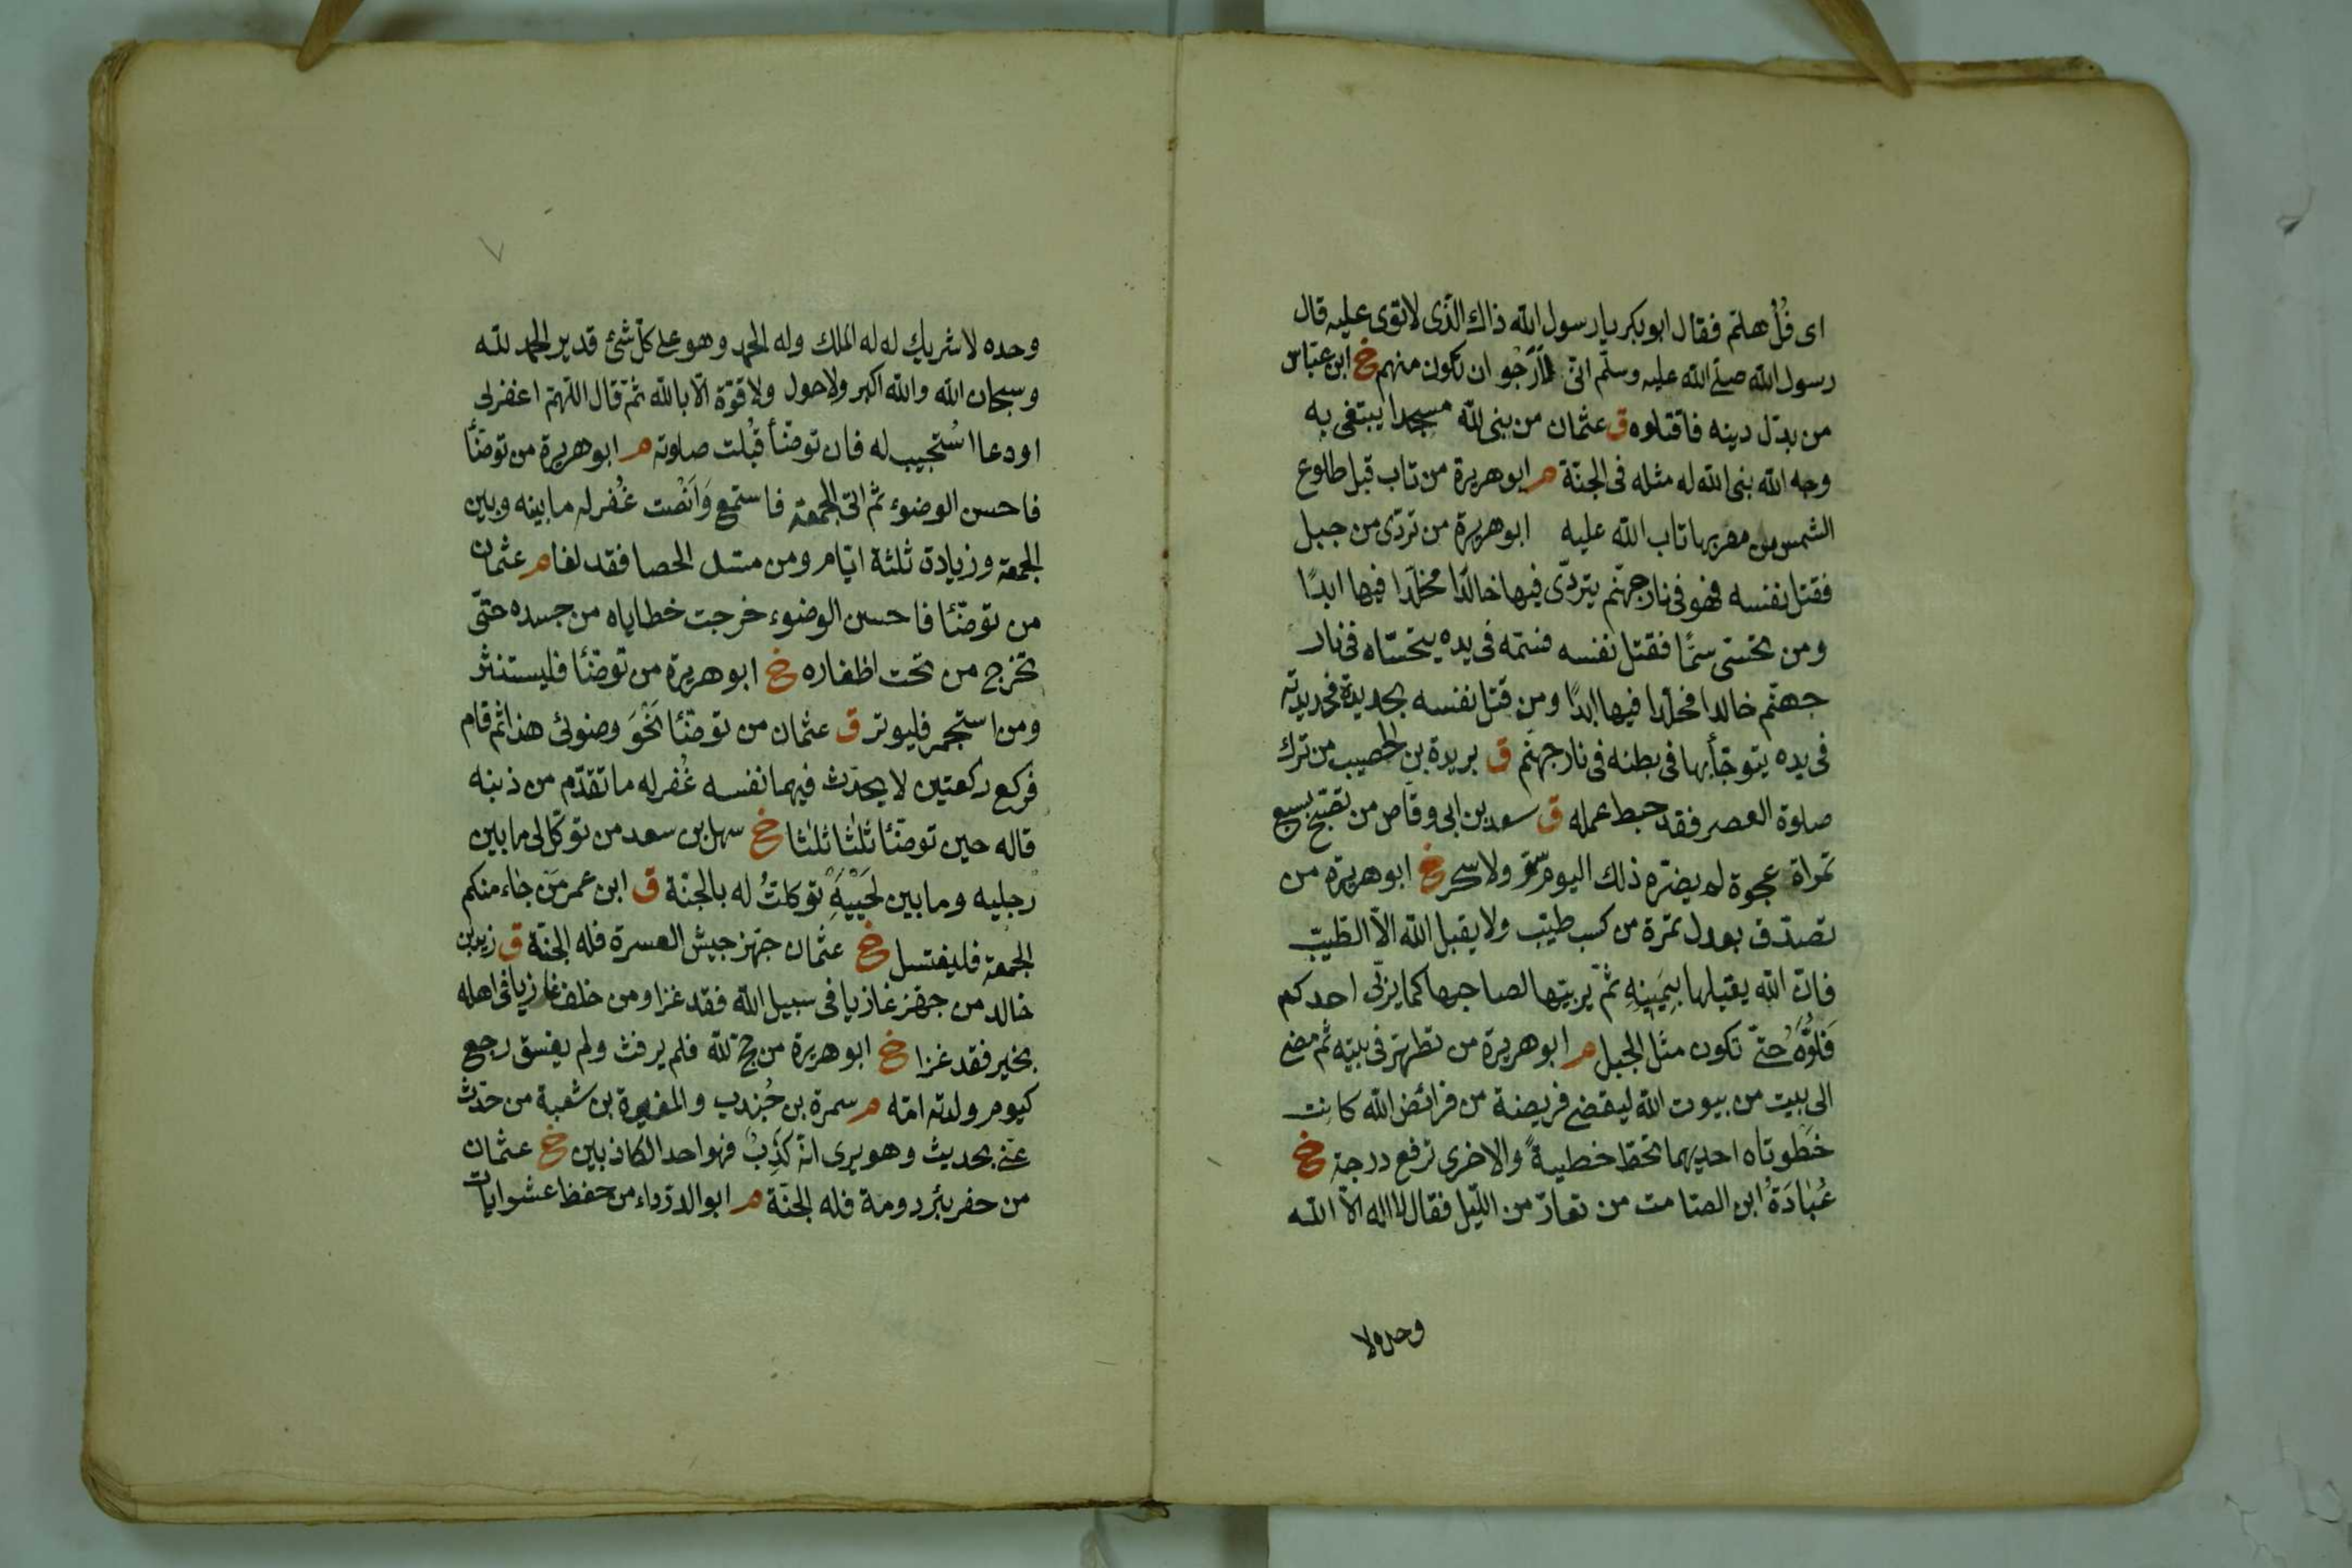 اى فُلْ هلمّ فقال ابو بكر يا رسول الله ذاك الّذى لا توى عليه قال
رسول الله صلّى الله عليه وسلّم انّى لاَرَجُو ان تكون منهم خ ابن عبّاس
من بدّل دينه فاقتلوه ق عثمان من بنى لله مسجدا يبتغى به
وجه الله بنى الله له مثله فى الجنّة م ابو هريرة من تاب قبل طلوع
الشمس من مغربها تاب الله عليه ابو هريرة من تردّى من جبل
فقتل نفسه فهو فى نار جهنّم يتردّى فيها خالدًا مخلّدا فيها ابدًا
ومن تحسّى سمًّا فقتل نفسه فسمّه فى يده يتحسّاه فى نار
جهنّم خالدا مخلّدا فيها ابدًا ومن قتل نفسه بحديدة فحديدته
فى يده يتوجّأ بها فى بطنه فى نار جهنّم ق بريدة بن الحصيب من ترك
صلوة العصر فقد حبط عمله ق سعد بن ابى وقّاص من تصبّح بسبع
تمراة عجوة لم يضرّه ذلك اليوم سمّ ولا سحر خ ابو هريرة من
تصدّق بعدل تمرة من كسب طيّب ولا يقبل الله الاّ الطّيّب
فانّ الله يقبلها بِيَمِينِهِ ثمّ يربيّها لصاحبها كما يربّى احدكم
فَلُوَّهُ حتّى تكون مثل الجبل م ابو هريرة من تطهّر فى بيته ثم مضى
الى بيت من بيوت الله ليقضى فريضة من فرائض الله كانت
خَطوتاه احديهما تحطّ خطيةً والاخرى ترفع درجة خ
عُبَادَةُ ابن الصّامت من تعارّ من اللّيل فقال لا اله الاّ الله
وحده لا
وحده لا شريك له له الملك وله الحمد وهو على كلّ شئ قدير الحمد لله
وسبحان الله والله اكبر ولا حول ولا قوّة الاّ بالله ثمّ قال اللّهمّ اغفر لى
او دعا اسُتجيب له فان توضّأ قُبلت صلوته م ابو هريرة من توضّأ
فاحسن الوضوء ثم اتى الجمعة فاستمع وَاَنْصت غُفر له ما بينه وبين
الجمعة وزيادة ثلثة ايّام ومن مسّ الحصا فقد لغا م عثمان
من توضّئا فاحسن الوضوء خرجت خطاياه من جسده حتّى
تخرج من تحت اظفاره خ ابو هريرة من توضّئا فليستنثر
ومن استجمر فليوتر ق عثمان من توضّئا نَحْوَ وضوئى هذا ثم قام
فركع ركعتين لا يحدّث فيهما نفسه غُفر له ما تقدّم من ذنبه
قاله حين توضّئا ثلثا ثلثا خ سهل بن سعد من توكّل لى ما بين
رجليه وما بين لَحْيَيْهِ توكلتُ له بالجنّة ق ابن عمر مَن جاء منكم
الجمعة فليغتسل خ عثمان جهّز جيش العسرة فله الجنّة ق زيد بن
خالد من جهّز غازيا فى سبيل الله فقد غزا ومن خلف غازيا فى اهله
بخير فقد غزا خ ابو هريرة من حجّ لله فلم يرفث ولم يفسق رجع
كيوم ولدته امّه م سمرة بن جُندب والمغيرة بن شعبة من حدّث
عنّى بحديث وهو يرى انّه كَذِبٌ فهو احد الكاذبين خ عثمان
من حفر بئر رومة فله الجنّة م ابو الدرداء من حفظ عشر ايات